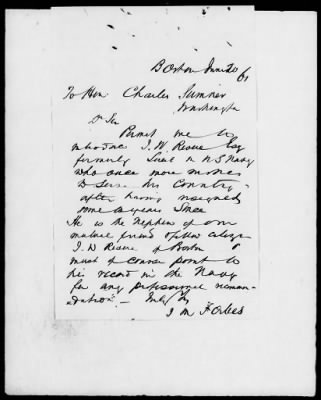 Boston June 20/61
To Hon Charles Sumner
Washington
Dr Sir
Permit me to
introduce J. W. Revere Esq
formerly Lieut in U S Navy
who once more
to serve his Country
after having resigned
some years since
He is the Nephew of our
mutual friend
J. W Revere of Boston &
must of course point to
his record in the Navy
for any professional recomm-
endation -
J M Forbes